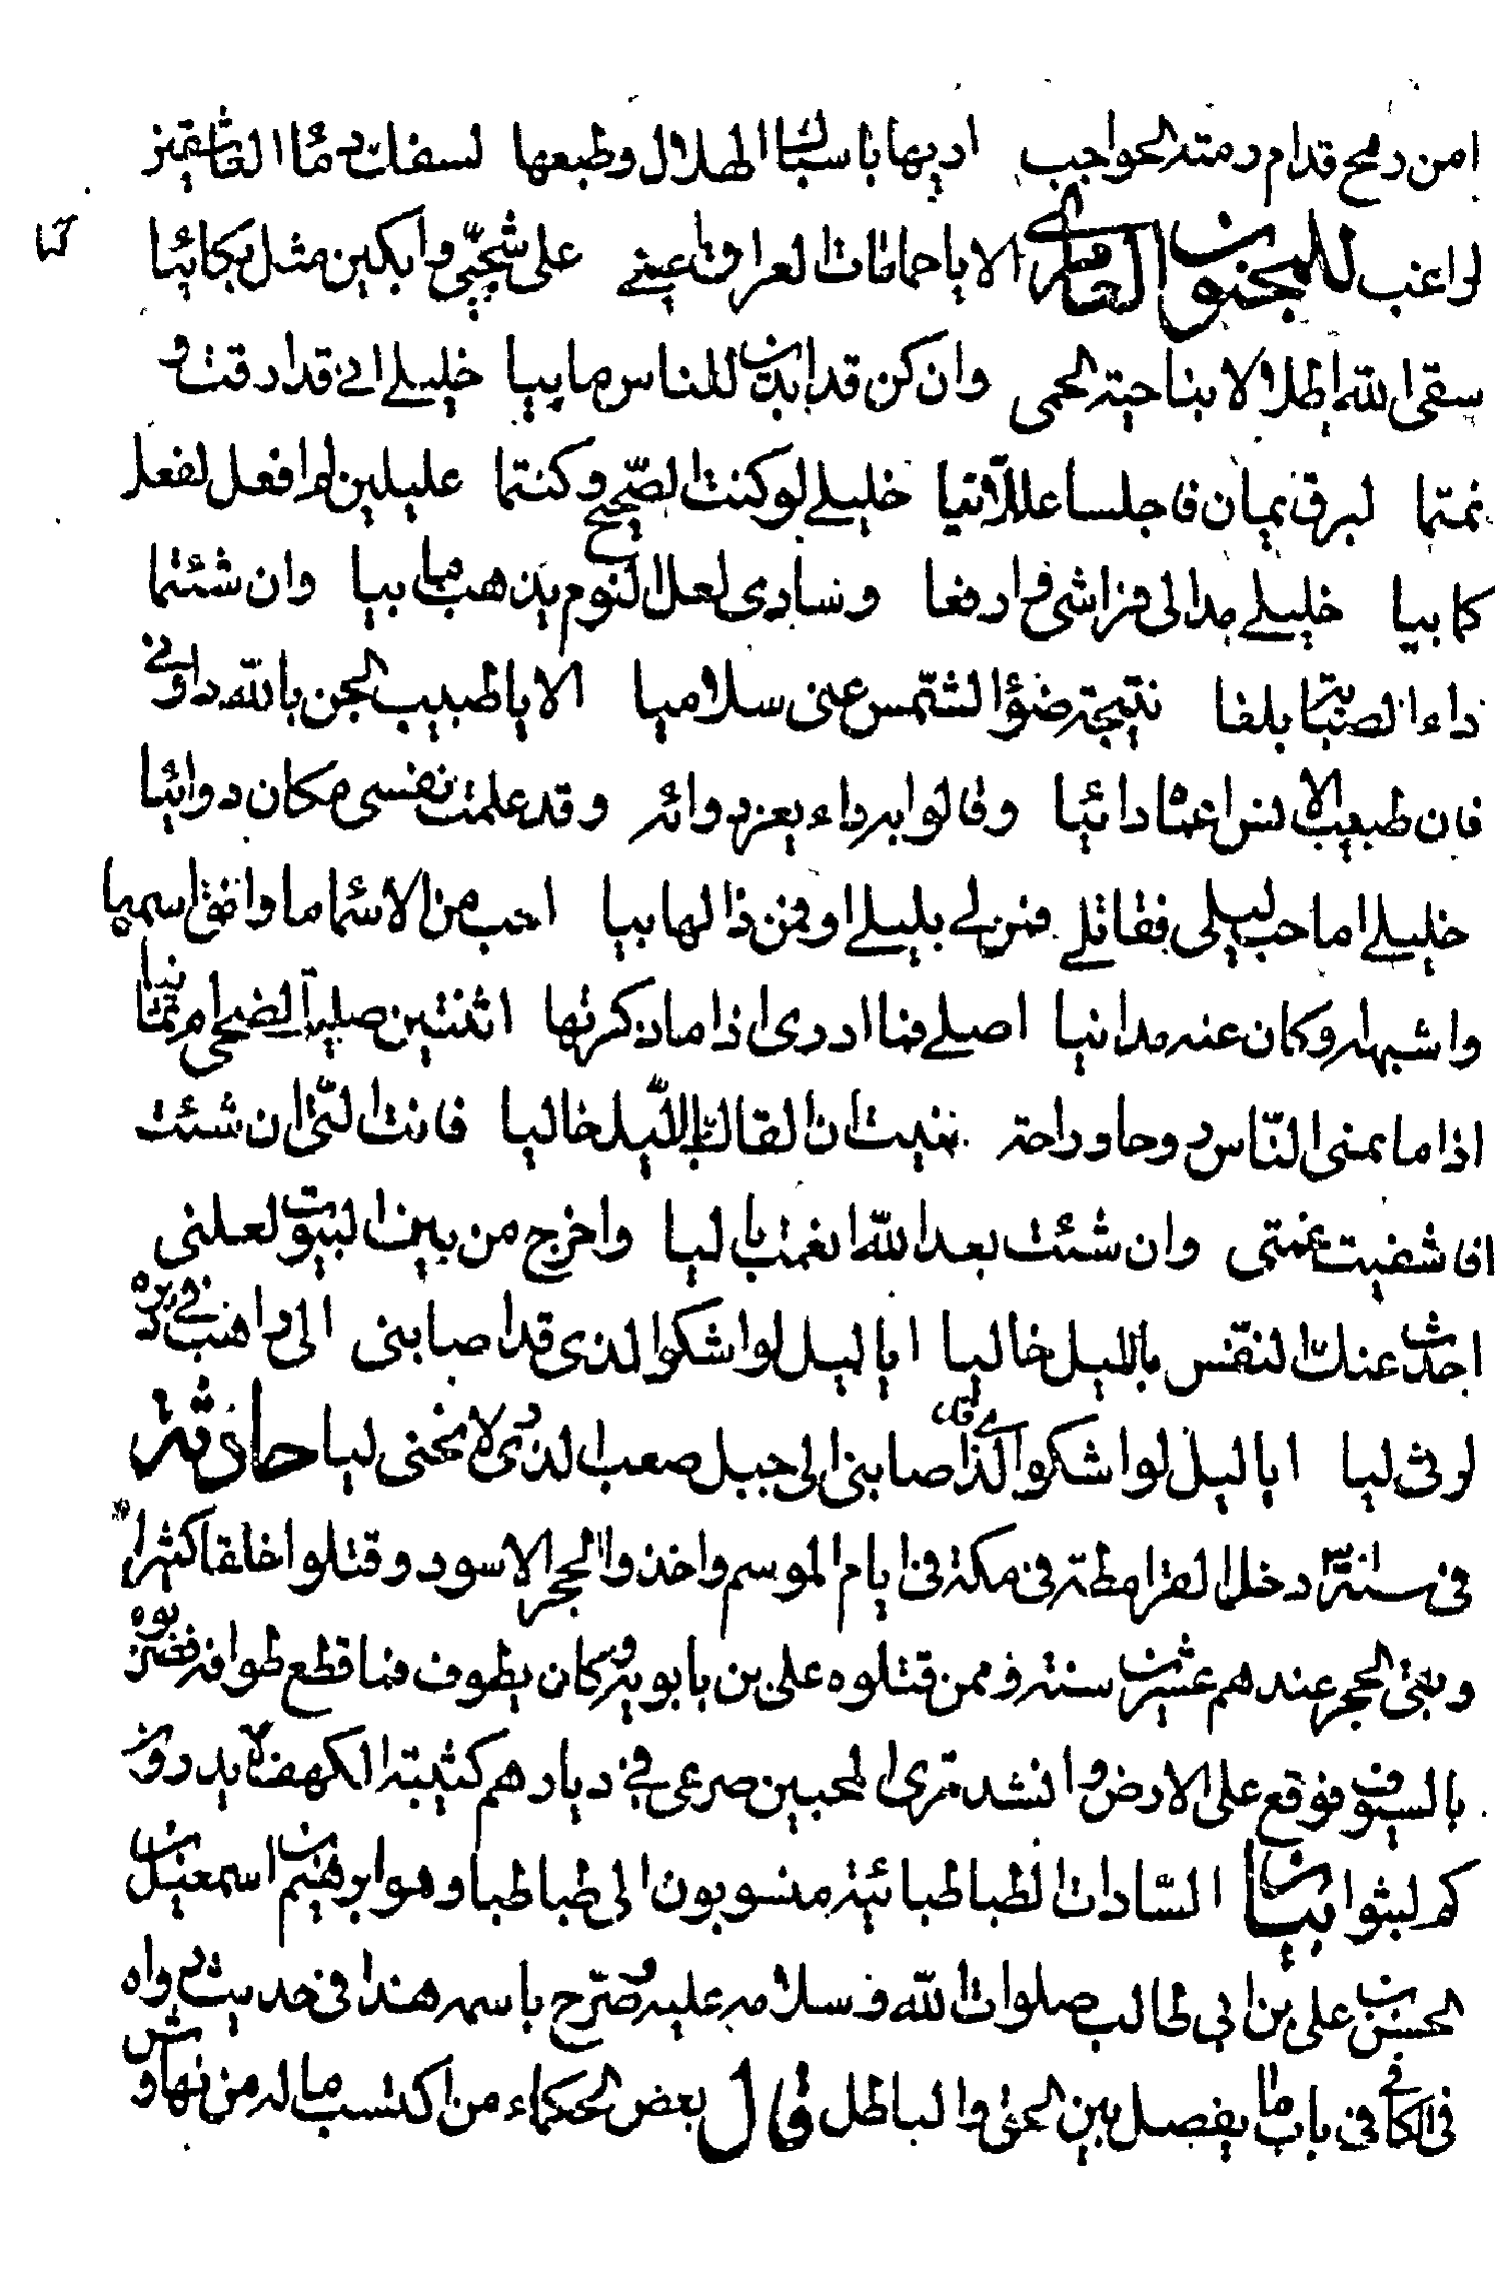 امن رمح قدام رمته الحواجب اديها با سباك الهلال وطبعها لسفك دما العاشقين
لواعب للمجنون العامري الا يا حمامات العراق عيني على شجني وابكين مثل بكائيا
كما
سقى الله اطلالا بناحية الحمى وان كن قد ابدين للناس ما بيا خليلي اني قد ارقت و
نمتما لبرق يمان فاجلسا عللانيا خليلي لو كنت الصحيح وكنتما عليلين لم افعل لفعل
كما بيا خليلي مدا لي فراشي وارفعا وسادي لعل النوم يذهب ما بيا وان شئتما
داء الصبابة بلغا نتيجة ضوء الشمس عني سلاميا الا يا طبيب الجن بالله داوني
فان طبيب الانس اعياه دائيا وقالوا به داء يعز دوائه وقد علمت نفسي مكان دوائيا
خليلي اما حب ليلى فقاتلي فمن لي بليلى او فمن ذا لها بيا احب من الاسماء ما وافق اسمها
واشبهه وكان عنه مدانيا اصلي فما ادري اذا ما ذكرتها اثنتين صليت الضحى ام ثمانيا
اذا ما تمنى الناس روحا وراحة تمنيت ان القاك يا ليل خاليا فانت التي ان شئت
اشفيت غمتي وان شئت بعد الله انعمت باليا واخرج من بين البيوت لعلني
احدث عنك النفس بالليل خاليا ايا ليل لو اشكو الذي قد اصابني الى راهب في ديره
لرثى ليا ايا ليل لو اشكو الذي قد اصابني الى جبل صعب الذرى لانحنى ليا حادثة
في سنة ٣١٠ دخل القرامطة في مكة في ايام الموسم واخذوا الحجر الاسود وقتلوا خلقا كثيرا
وبقى الحجر عندهم عشرين سنة وممن قتلوه على بن بابويه وكان يطوف فما قطع طوافه فضربوه
بالسيوف فوقع على الارض وانشد ترى المحبين صرعى في ديارهم كفتية الكهف لا يدرون
كم لبثوا بيان السادات الطباطبائية منسوبون الى طباطبا وهو ابرهيم بن اسمعيل بن
الحسن بن على بن ابي طالب صلوات الله وسلامه عليه وصرح باسمه هذا في حديث رواه
في الكافي في باب ما يفصل بين الحق والباطل قال بعض الحكماء من اكتسب ماله من نهاوش